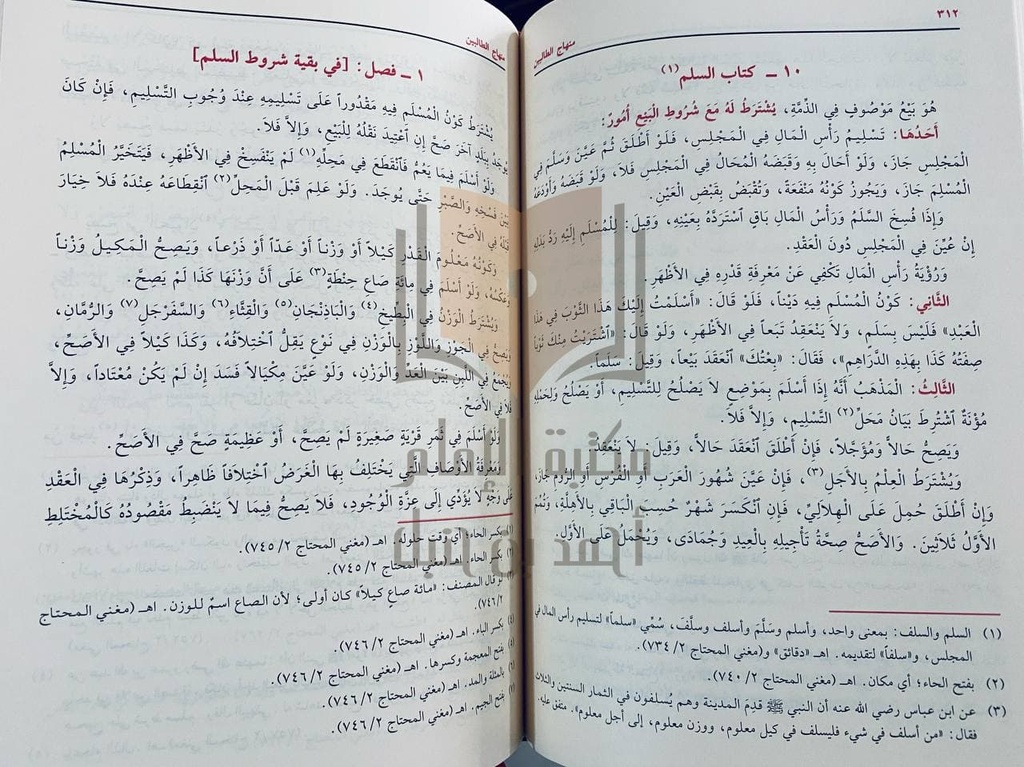 ٣١٢
منهاج الطالبين
١٠ - كتاب السلم (١)
هُوَ بَيْعُ مَوْصُوفٍ فِي الذِّمَّةِ، يُشْتَرَطُ لَهُ مَعَ شُرُوطِ الْبَيْعِ أُمُورٌ:
أَحَدُهَا: تَسْلِيمُ رَأْسِ الْمَالِ فِي الْمَجْلِسِ، فَلَوْ أَطْلَقَ ثُمَّ عَيَّنَ وَسَلَّمَ فِي
الْمَجْلِسِ جَازَ، وَلَوْ أَحَالَ بِهِ وَقَبَضَهُ الْمُحَالُ فِي الْمَجْلِسِ فَلَا، وَلَوْ قَبَضَهُ وَأَوْدَعَهُ
الْمُسْلِمَ جَازَ، وَيَجُوزُ كَوْنُهُ مَنْفَعَةً، وَتُقْبَضُ بِقَبْضِ الْعَيْنِ.
وَإِذَا فُسِخَ السَّلَمُ وَرَأْسُ الْمَالِ بَاقٍ ٱسْتَرَدَّهُ بِعَيْنِهِ، وَقِيلَ: لِلْمُسْلَمِ إِلَيْهِ رَدُّ بَدَلِهِ
إِنْ عُيِّنَ فِي الْمَجْلِسِ دُونَ الْعَقْدِ.
وَرُؤْيَةُ رَأْسِ الْمَالِ تَكْفِي عَنْ مَعْرِفَةِ قَدْرِهِ فِي الأَظْهَرِ.
الثَّانِي: كَوْنُ الْمُسْلَمِ فِيهِ دَيْناً، فَلَوْ قَالَ: «أَسْلَمْتُ إِلَيْكَ هَذَا الثَّوْبَ فِي هَذَا
الْعَبْدِ» فَلَيْسَ بِسَلَمٍ، وَلَا يَنْعَقِدُ بَيْعاً فِي الأَظْهَرِ، وَلَوْ قَالَ: «ٱشْتَرَيْتُ مِنْكَ ثَوْباً
صِفَتُهُ كَذَا بِهَذِهِ الدَّرَاهِمِ»، فَقَالَ: «بِعْتُكَ» ٱنْعَقَدَ بَيْعاً، وَقِيلَ: سَلَماً.
الثَّالِثُ: الْمَذْهَبُ أَنَّهُ إِذَا أَسْلَمَ بِمَوْضِعٍ لَا يَصْلُحُ لِلتَّسْلِيمِ، أَوْ يَصْلُحُ وَلِحَمْلِهِ
مُؤْنَةٌ ٱشْتُرِطَ بَيَانُ مَحَلِّ (٢) التَّسْلِيمِ، وَإِلَّا فَلَا.
وَيَصِحُّ حَالّاً وَمُؤَجَّلاً، فَإِنْ أَطْلَقَ ٱنْعَقَدَ حَالّاً، وَقِيلَ: لَا يَنْعَقِدُ.
وَيُشْتَرَطُ الْعِلْمُ بِالأَجَلِ (٣)، فَإِنْ عَيَّنَ شُهُورَ الْعَرَبِ أَوْ الْفُرْسِ أَوِ الرُّومِ جَازَ،
وَإِنْ أَطْلَقَ حُمِلَ عَلَى الْهِلَالِيِّ، فَإِنِ ٱنْكَسَرَ شَهْرٌ حُسِبَ الْبَاقِي بِالأَهِلَّةِ، وَتُمِّمَ
الأَوَّلُ ثَلَاثِينَ. وَالأَصَحُّ صِحَّةُ تَأْجِيلِهِ بِالْعِيدِ وَجُمَادَى، وَيُحْمَلُ عَلَى الأَوَّلِ.
(١) السلم والسلف: بمعنى واحد، وأسلم وسلَّم وأسلف وسلَّف، سُمِّي «سلماً» لتسليم رأس المال في
المجلس، و«سلفاً» لتقديمه. اهـ «دقائق» و(مغني المحتاج ٢/ ٧٣٤).
(٢) بفتح الحاء؛ أي مكان. اهـ (مغني المحتاج ٢/ ٧٤٠).
(٣) عن ابن عباس رضي الله عنه أن النبي ﷺ قَدِمَ المدينة وهم يُسلفون في الثمار السنتين والثلاث
فقال: «من أسلف في شيء فليسلف في كيل معلوم، ووزن معلوم، إلى أجل معلوم». متفق عليه.
منهاج الطالبين
١ - فصل: [في بقية شروط السلم]
يُشْتَرَطُ كَوْنُ الْمُسْلَمِ فِيهِ مَقْدُوراً عَلَى تَسْلِيمِهِ عِنْدَ وُجُوبِ التَّسْلِيمِ، فَإِنْ كَانَ
يُوجَدُ بِبَلَدٍ آخَرَ صَحَّ إِنِ ٱعْتِيدَ نَقْلُهُ لِلْبَيْعِ، وَإِلَّا فَلَا.
وَلَوْ أَسْلَمَ فِيمَا يَعُمُّ فَٱنْقَطَعَ فِي مَحِلِّهِ (١) لَمْ يَنْفَسِخْ فِي الأَظْهَرِ، فَيَتَخَيَّرُ الْمُسْلِمُ
بَيْنَ فَسْخِهِ وَالصَّبْرِ حَتَّى يُوجَدَ. وَلَوْ عَلِمَ قَبْلَ الْمَحِلِّ (٢) ٱنْقِطَاعَهُ عِنْدَهُ فَلَا خِيَارَ
قَبْلَهُ فِي الأَصَحِّ.
وَكَوْنُهُ مَعْلُومَ الْقَدْرِ كَيْلاً أَوْ وَزْناً أَوْ عَدّاً أَوْ ذَرْعاً، وَيَصِحُّ الْمَكِيلُ وَزْناً
وَعَكْسُهُ، وَلَوْ أَسْلَمَ فِي مِائَةِ صَاعِ حِنْطَةٍ (٣) عَلَى أَنَّ وَزْنَهَا كَذَا لَمْ يَصِحَّ.
وَيُشْتَرَطُ الْوَزْنُ فِي الْبِطِّيخِ (٤) وَالْبَاذِنْجَانِ (٥) وَالْقِثَّاءِ (٦) وَالسَّفَرْجَلِ (٧) وَالرُّمَّانِ،
وَيَصِحُّ فِي الْجَوْزِ وَاللَّوْزِ بِالْوَزْنِ فِي نَوْعٍ يَقِلُّ ٱخْتِلَافُهُ، وَكَذَا كَيْلاً فِي الأَصَحِّ،
وَيُجْمَعُ فِي اللَّبِنِ بَيْنَ الْعَدِّ وَالْوَزْنِ، وَلَوْ عَيَّنَ مِكْيَالاً فَسَدَ إِنْ لَمْ يَكُنْ مُعْتَاداً، وَإِلَّا
فَلَا فِي الأَصَحِّ.
وَلَوْ أَسْلَمَ فِي ثَمَرِ قَرْيَةٍ صَغِيرَةٍ لَمْ يَصِحَّ، أَوْ عَظِيمَةٍ صَحَّ فِي الأَصَحِّ.
وَمَعْرِفَةُ الأَوْصَافِ الَّتِي يَخْتَلِفُ بِهَا الْغَرَضُ ٱخْتِلَافاً ظَاهِراً، وَذِكْرُهَا فِي الْعَقْدِ
عَلَى وَجْهٍ لَا يُؤَدِّي إِلَى عِزَّةِ الْوُجُودِ، فَلَا يَصِحُّ فِيمَا لَا يَنْضَبِطُ مَقْصُودُهُ كَالْمُخْتَلِطِ
(١) بكسر الحاء؛ أي وقت حلوله. اهـ (مغني المحتاج ٢/ ٧٤٥).
(٢) بكسر الحاء. اهـ (مغني المحتاج ٢/ ٧٤٥).
لو قال المصنف: «مائة صاعٍ كيلاً» كان أولى؛ لأن الصاع اسمٌ للوزن. اهـ (مغني المحتاج
٢/ ٧٤٦).
بكسر الباء. اهـ (مغني المحتاج ٢/ ٧٤٦).
بفتح المعجمة وكسرها. اهـ (مغني المحتاج ٢/ ٧٤٦).
بالمثلثة والمد. اهـ (مغني المحتاج ٢/ ٧٤٦).
بفتح الجيم. اهـ (مغني المحتاج ٢/ ٧٤٦).
مكتبة الإمام
أحمد بن حنبل